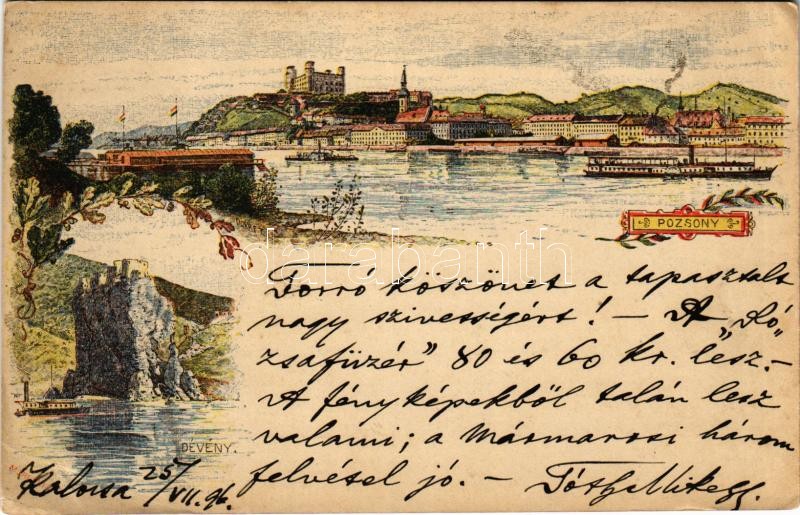 POZSONY
DÉVÉNY.
Forró köszönet a tapasztalt
nagy szivességért! - A „Ró
zsafüzér" 80 és 60 kr. lesz.-
A fényképekből talán lesz
valami; a Mármarosi három
felvétel jó. -
Kalocsa 25/VII. 96.
darabanth